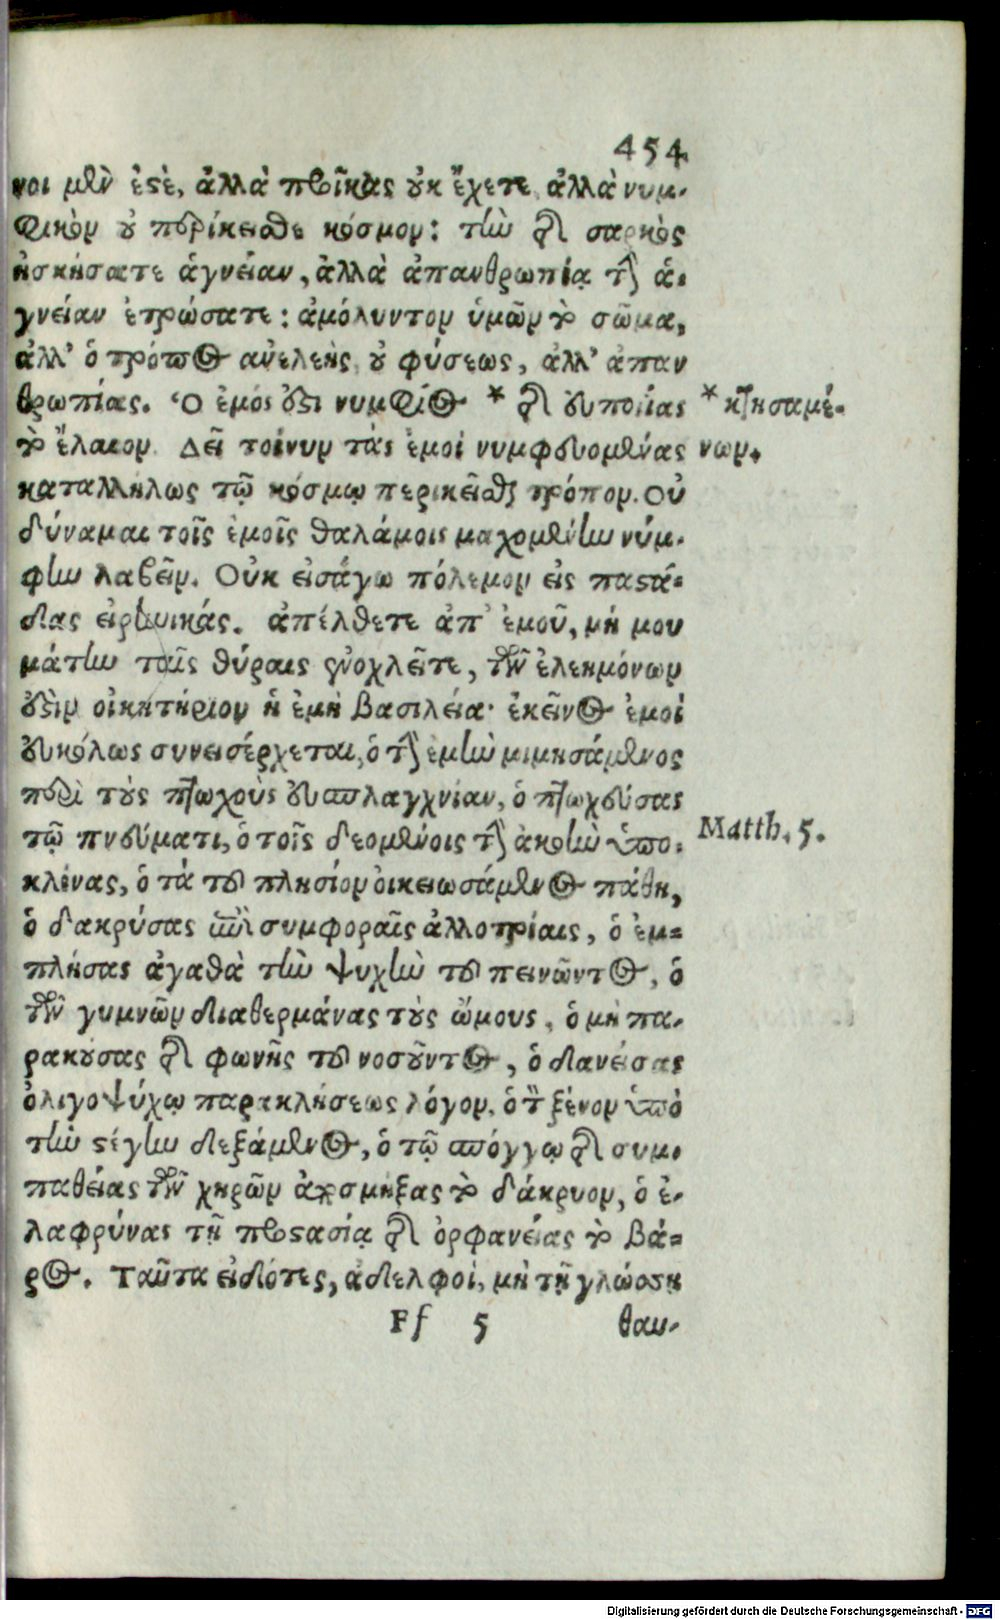 454
νοι μὲν ἐστὲ, ἀλλὰ προῖκας οὐκ ἔχετε, ἀλλὰ νυμ-
φικὸν οὐ περίκεισθε κόσμον: τὴν τῆς σαρκὸς
ἠσκήσατε ἁγνείαν, ἀλλὰ ἀπανθρωπίᾳ τὴν ἁ-
γνείαν ἐτρώσατε: ἀμόλυντον ὑμῶν τὸ σῶμα,
ἀλλ' ὁ τρόπος ἀνελεὴς οὐ φύσεως, ἀλλ' ἀπαν
θρωπίας. Ὁ ἐμός ἐστι νυμφίος * τῆς εὐποιίας * κτησαμέ-
τὸ ἔλαιον. Δεῖ τοίνυν τὰς ἐμοὶ νυμφευομένας νων.
καταλλήλως τῷ κόσμῳ περικεῖσθαι τρόπον. Οὐ
δύναμαι τοῖς ἐμοῖς θαλάμοις μαχομένην νύμ-
φην λαβεῖν. Οὐκ εἰσάγω πόλεμον εἰς παστά-
δας εἰρηνικάς. ἀπέλθετε ἀπ' ἐμοῦ, μή μου
μάτην ταῖς θύραις ἐνοχλεῖτε, τῶν ἐλεημόνων
ἐστὶν οἰκητήριον ἡ ἐμὴ βασιλεία· ἐκεῖνος ἐμοὶ
εὐκόλως συνεισέρχεται, ὁ τὴν ἐμὴν μιμησάμενος
περὶ τοὺς πτωχοὺς εὐσπλαγχνίαν, ὁ πτωχεύσας
τῷ πνεύματι, ὁ τοῖς δεομένοις τὴν ἀκοὴν ὑπο- Matth. 5.
κλίνας, ὁ τὰ τοῦ πλησίον οἰκειωσάμενος πάθη,
ὁ δακρύσας ἐπὶ συμφοραῖς ἀλλοτρίαις, ὁ ἐμ-
πλήσας ἀγαθὰ τὴν ψυχὴν τοῦ πεινῶντος, ὁ
τῶν γυμνῶν διαθερμάνας τοὺς ὤμους, ὁ μὴ πα-
ρακούσας τῆς φωνῆς τοῦ νοσοῦντος, ὁ δανείσας
ὀλιγοψύχῳ παρακλήσεως λόγον, ὁ τὸν ξένον ὑπὸ
τὴν στέγην δεξάμενος, ὁ τῷ σπόγγῳ τῆς συμ-
παθείας τῶν χηρῶν ἀποσμήξας τὸ δάκρυον, ὁ ἐ-
λαφρύνας τῇ προστασίᾳ τῆς ὀρφανείας τὸ βά-
ρος. Ταῦτα εἰδότες, ἀδελφοὶ, μὴ τῇ γλώσσῃ
Ff 5 θαυ-
Digitalisierung gefördert durch die Deutsche Forschungsgemeinschaft - DFG